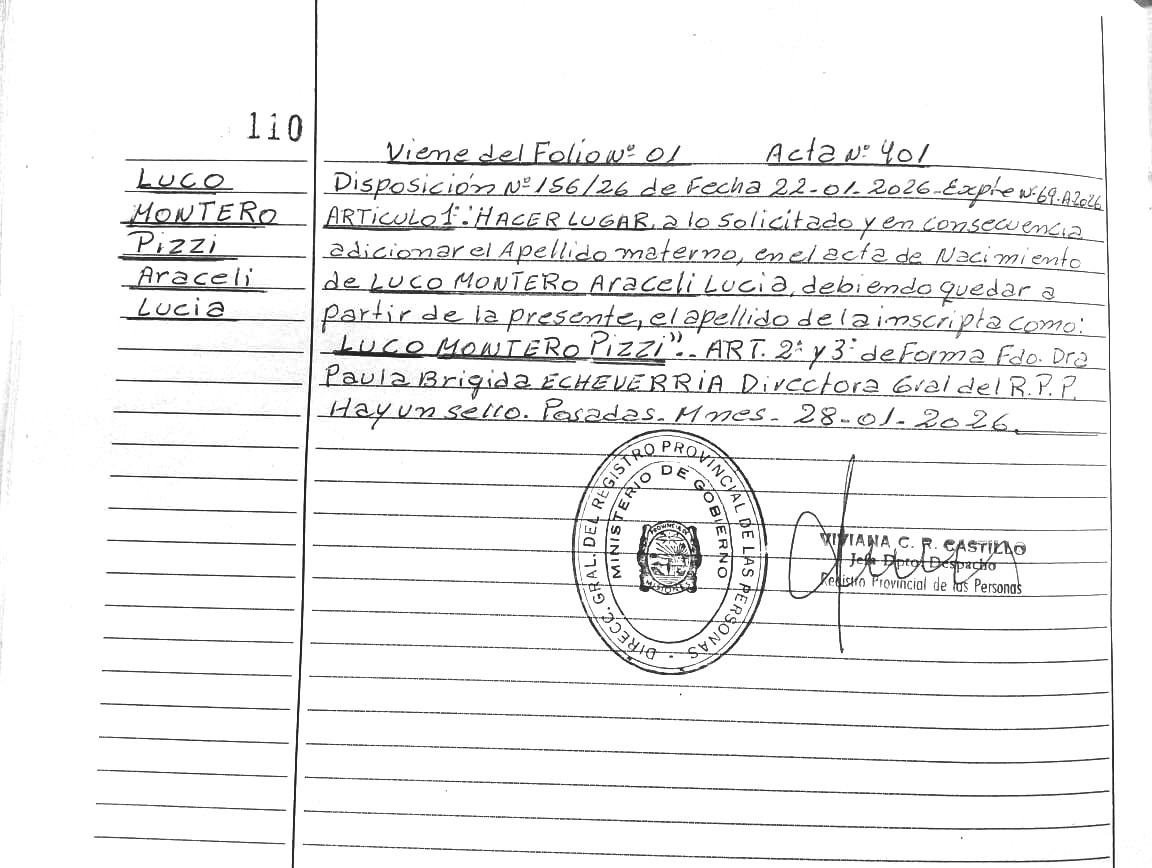 110
Viene del Folio Nº 01 Acta Nº 401
LUCO
MONTERO
Pizzi
Araceli
Lucia
Disposición Nº 156/26 de Fecha 22-01-2026-Expte Nº 69-A2026
ARTICULO 1º: "HACER LUGAR, a lo solicitado y en consecuencia
adicionar el Apellido materno, en el acta de Nacimiento
de LUCO MONTERO Araceli Lucia, debiendo quedar a
partir de la presente, el apellido de la inscripta como:
LUCO MONTERO Pizzi".- ART. 2º y 3º de Forma Fdo. Dra
Paula Brigida ECHEVERRIA Directora Gral del R.P.P.
Hay un sello. Posadas. Mnes- 28-01-2026.
DIRECC. GRAL. DEL REGISTRO PROVINCIAL DE LAS PERSONAS -
MINISTERIO DE GOBIERNO
PROVINCIA DE
MISIONES
VIVIANA C. R. CASTILLO
Jefa Dpto. Despacho
Registro Provincial de las Personas